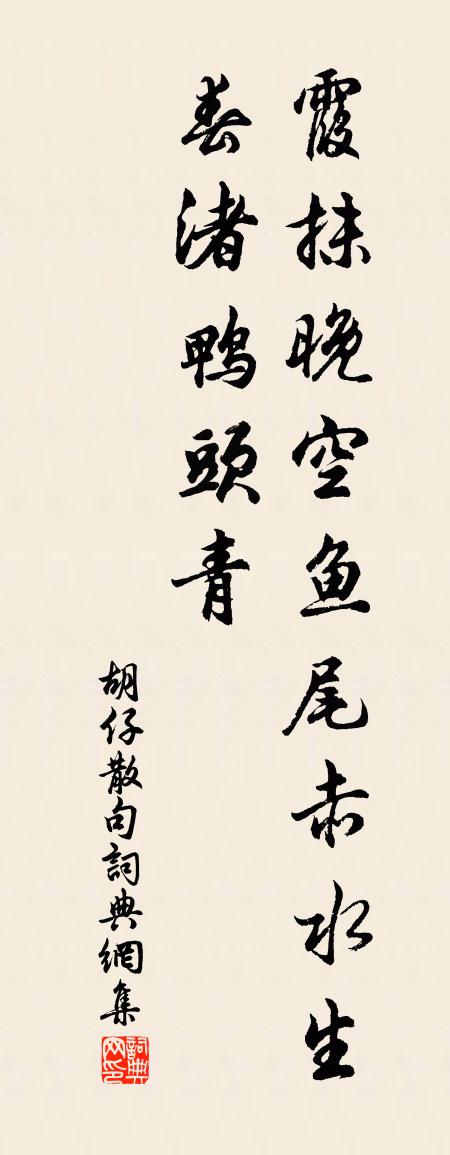 霞抹晚空鱼尾赤水生
春渚鸭頭青
胡仔散句詞典網集
詞典网印